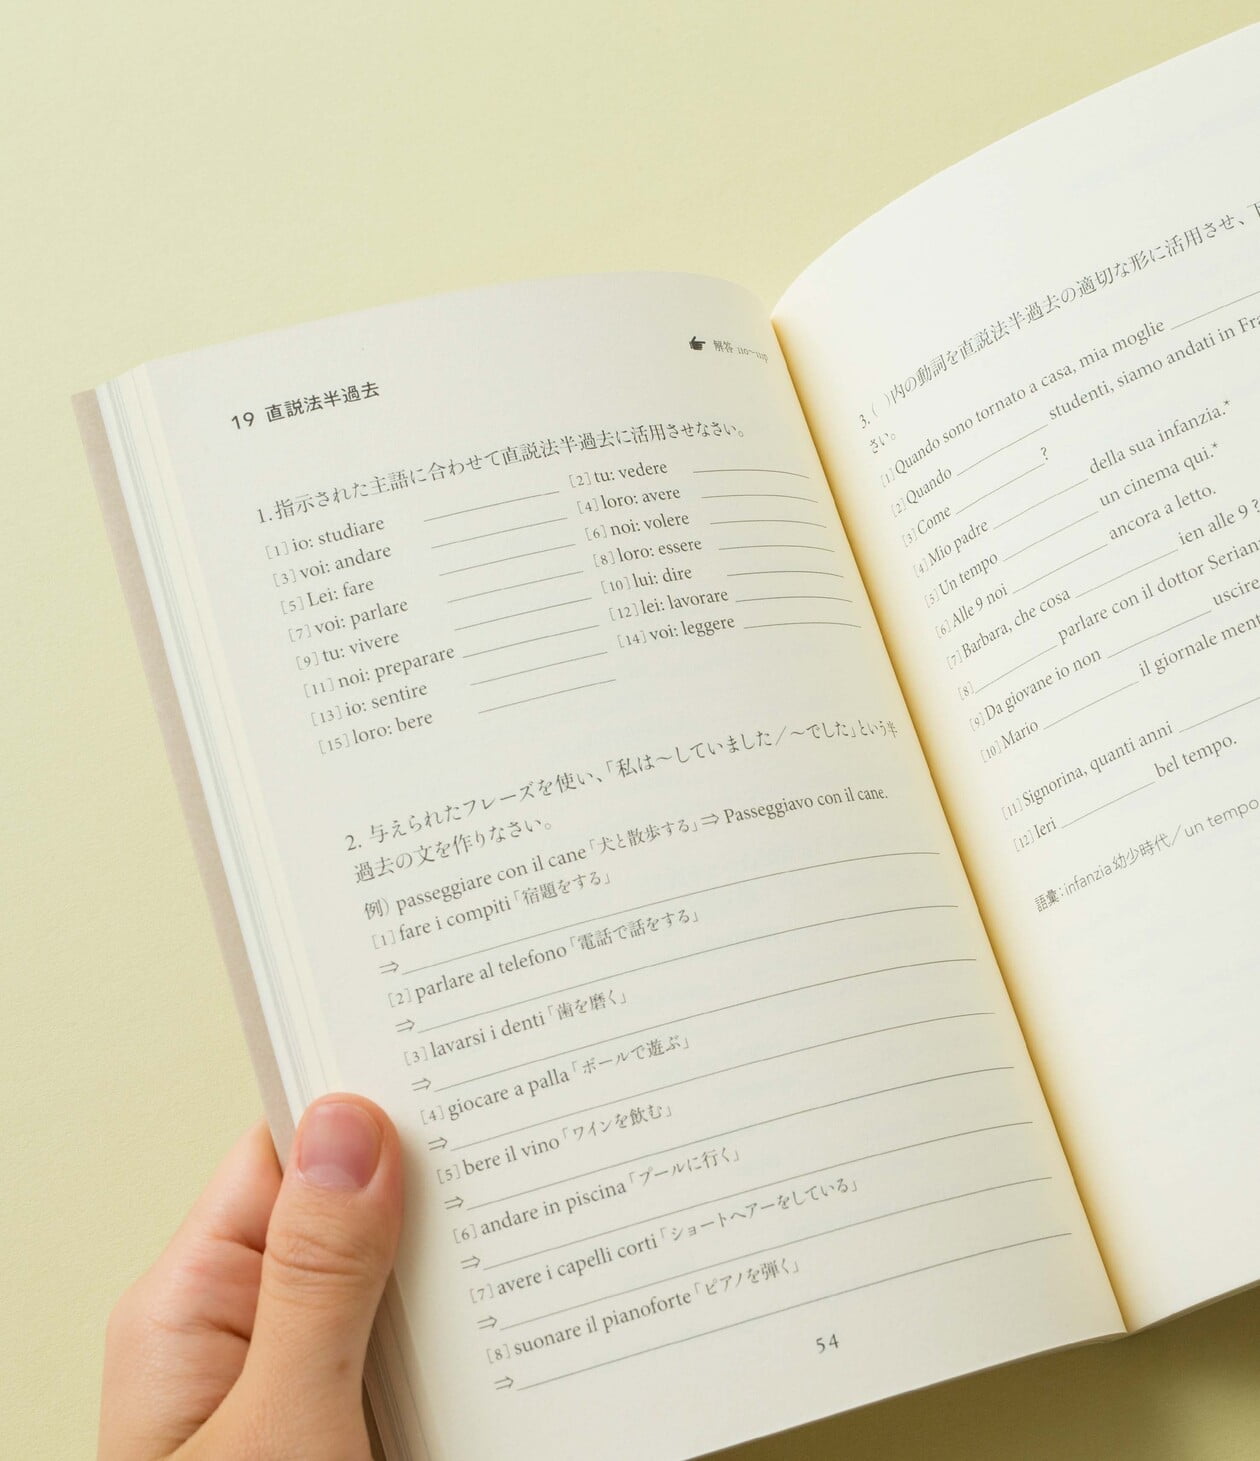 解答 110〜111p
19 直説法半過去
1. 指示された主語に合わせて直説法半過去に活用させなさい。
[1] io: studiare ____ [2] tu: vedere ____
[3] voi: andare ____ [4] loro: avere ____
[5] Lei: fare ____ [6] noi: volere ____
[7] voi: parlare ____ [8] loro: essere ____
[9] tu: vivere ____ [10] lui: dire ____
[11] noi: preparare ____ [12] lei: lavorare ____
[13] io: sentire ____ [14] voi: leggere ____
[15] loro: bere ____
2. 与えられたフレーズを使い、「私は〜していました／〜でした」という半
過去の文を作りなさい。
例) passeggiare con il cane「犬と散歩する」⇒ Passeggiavo con il cane.
[1] fare i compiti「宿題をする」
⇒ ____
[2] parlare al telefono「電話で話をする」
⇒ ____
[3] lavarsi i denti「歯を磨く」
⇒ ____
[4] giocare a palla「ボールで遊ぶ」
⇒ ____
[5] bere il vino「ワインを飲む」
⇒ ____
[6] andare in piscina「プールに行く」
⇒ ____
[7] avere i capelli corti「ショートヘアーをしている」
⇒ ____
[8] suonare il pianoforte「ピアノを弾く」
⇒ ____
54
3. ( )内の動詞を直説法半過去の適切な形に活用させ、下
さい。
[1] Quando sono tornato a casa, mia moglie ____
[2] Quando ____ studenti, siamo andati in Fra
[3] Come ____ ?
[4] Mio padre ____ della sua infanzia.*
[5] Un tempo ____ un cinema qui.*
[6] Alle 9 noi ____ ancora a letto.
[7] Barbara, che cosa ____ ien alle 9 ?
[8] ____ parlare con il dottor Seriann
[9] Da giovane io non ____ uscire
[10] Mario ____ il giornale ment
[11] Signorina, quanti anni ____
[12] Ieri ____ bel tempo.
語彙：infanzia 幼少時代／un tempo